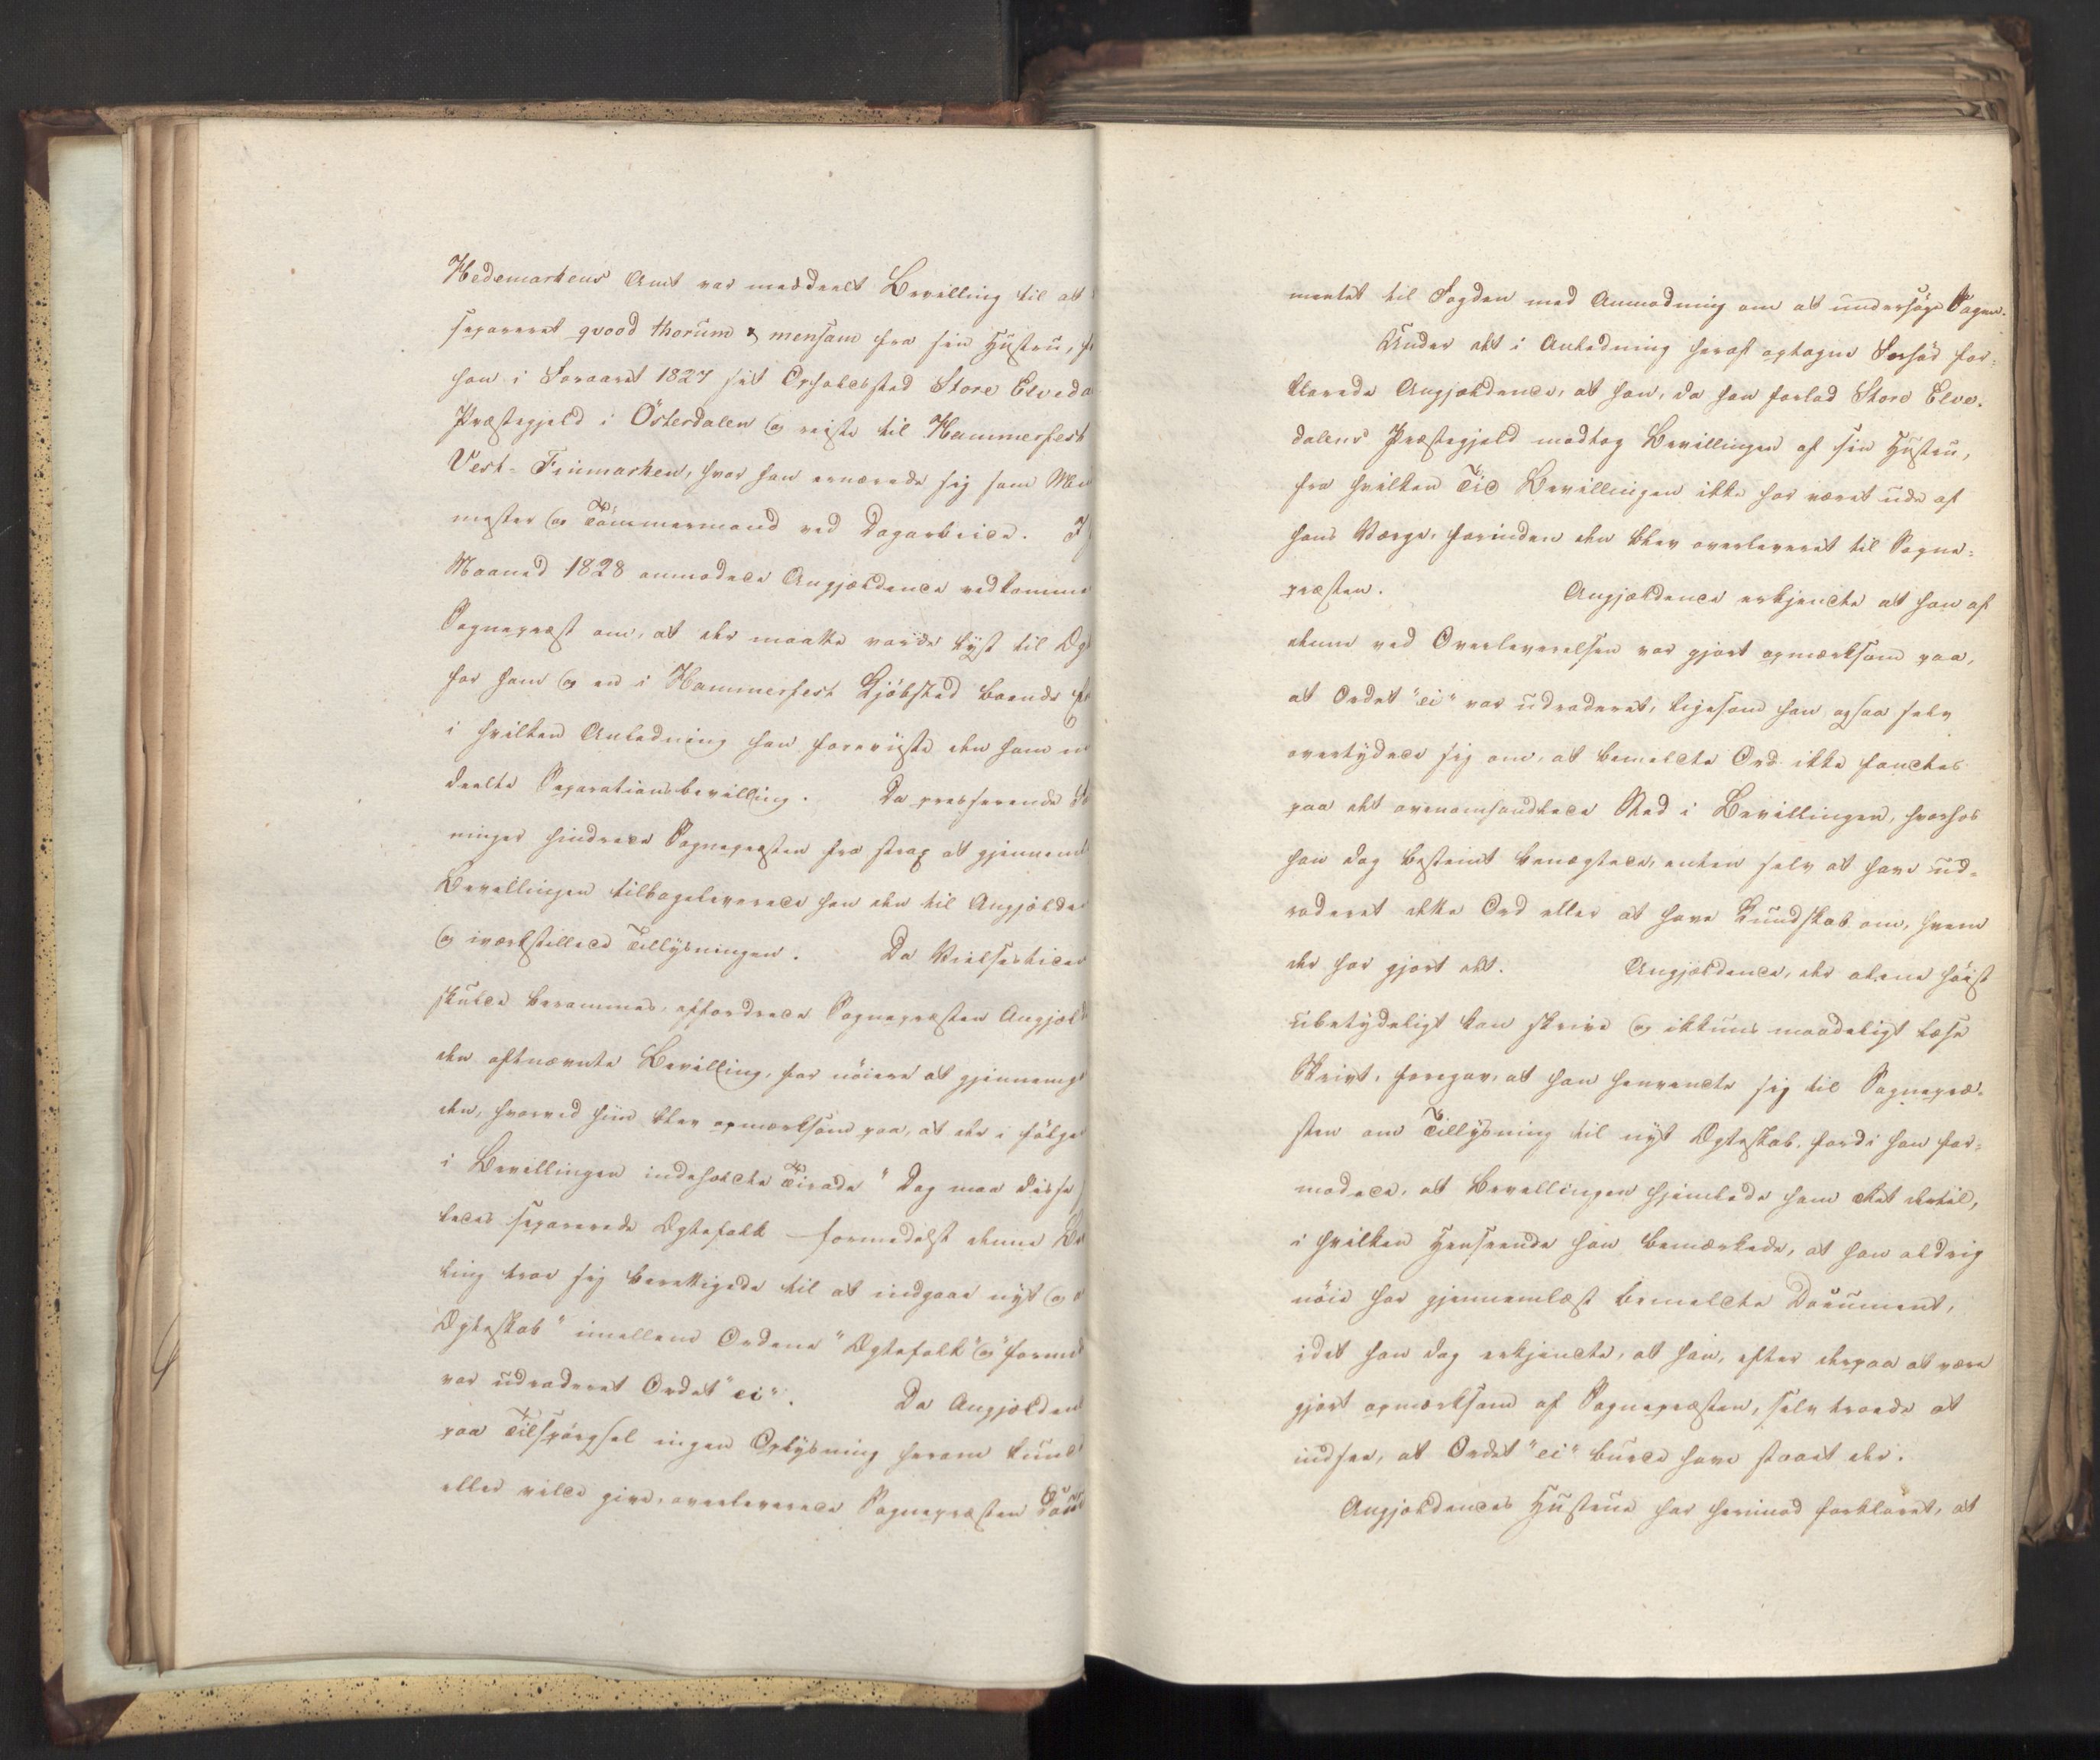 Hedemarkens Amt var meddeelt Bevilling til at
separeret qvood thorum & mensam fra sin Hustru,
han i Foraaret 1827 sit Opholdssted Store Elveda
Præstegjeld i Österdalen og reiste til Hammerfest
Vest-Finmarken, hvor han ernærede sig som
mester og Tömmermand ved Dagarbeide.
Maaned 1828 anmodede Angjældende vedkomme
Sognepræst om, at der maatte vorde lyst til Æg
for ham og en i Hammerfest Kjöbsted boende
i hvilken Anledning han foreviiste den ham
deelte Separationsbevilling. Da presserende
ninger hindrede Sognepræsten fra strax at gjennem
Bevillingen tilbageleverede han den til Angjælde
og iværkstillede Tillysningen. Da Vielsestiden
skulde berammes, affordrede Sognepræsten Angjæld
den oftnævnte Bevilling, for nöiere at gjennemg
den, hvorved hiin blev opmærksom paa, at der i fölge
i Bevillingen indeholdte Tirade "Dog maa disse
ledes separerede Ægtefolk formedelst denne Be
ling troe sig berettigede til at indgaae nyt og
Ægteskab" imellem Ordene "Ægtefolk" og "formed
var udraderet Ordet "ei". Da Angjælden
paa Tilspörgsel ingen Oplysning herom kund
eller vilde give, overleverede Sognepræsten Docu
mentet til Fogden med Anmodning om at undersöge Sagen.
Under det i Anledning heraf optagne Forhör for-
klarede Angjældende, at han, da han forlod Store Elve-
dalens Præstegjeld modtog Bevillingen af sin Hustru,
fra hvilken Tid Bevillingen ikke har været ude af
hans Værge, forinden den blev overleveret til Sogne-
præsten. Angjældende erkjendte at han af
denne ved Overleverelsen var gjort opmærksom paa,
at Ordet "ei" var udraderet, ligesom han ogsaa selv
overtydede sig om, at bemeldte Ord ikke fandtes
paa det ovenomhandlede Sted i Bevillingen, hvorhos
han dog bestemt benægtede, enten selv at have ud-
raderet dette Ord eller at have Kundskab om, hvem
der har gjort det. Angjældende, der alene höist
ubetydeligt kan skrive og ikkuns maadeligt læse
Skrivt, foregav, at han henvendte sig til Sognepræ-
sten om Tillysning til nyt Ægteskab, fordi han for-
modede, at Bevillingen hjemlede ham Ret dertil,
i hvilken Henseende han bemærkede, at han aldrig
nöie har gjennemlæst bemeldte Document,
idet han dog erkjendte, at han, efter derpaa at være
gjort opmærksom af Sognepræsten, selv troede at
indsee, at Ordet "ei" burde have staaet der.
Angjældendes Hustrue har herimod forklaret, at